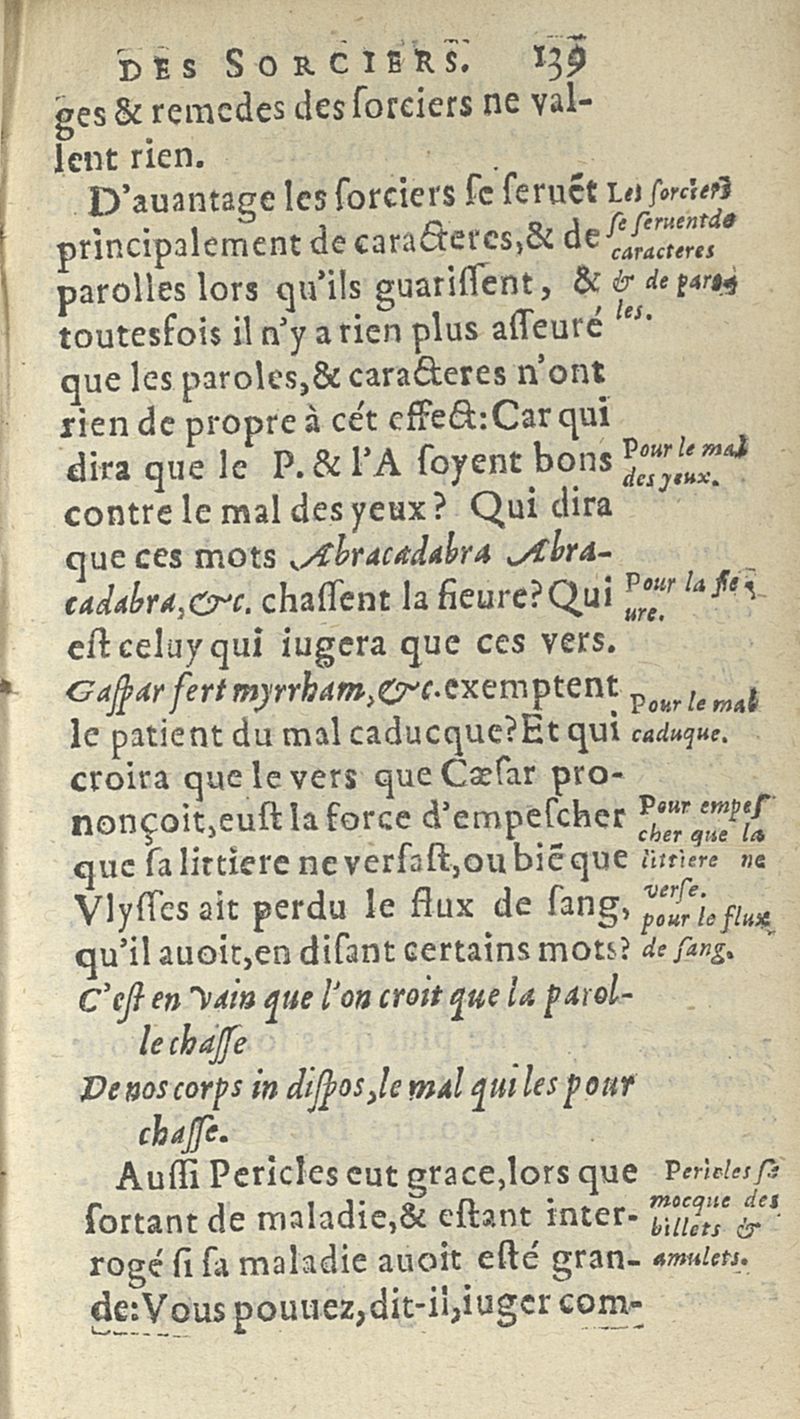 DES SORCIERS. 139
ges & remedes des ſorciers ne val-
lent rien.
D'auantage les ſorciers ſe ſeruēt
principalement de caracteres, & de
parolles lors qu'ils guariſſent, &
toutesfois il n'y a rien plus aſſeuré
que les paroles, & caracteres n'ont
rien de propre à cét effect: Car qui
dira que le P. & l'A ſoyent bons
contre le mal des yeux? Qui dira
que ces mots Abracadabra Abra-
cadabra, &c. chaſſent la fieure? Qui
eſt celuy qui iugera que ces vers.
Gaſpar fert myrrham, &c. exemptent
le patient du mal caducque? Et qui
croira que le vers que Cæſar pro-
nonçoit, euſt la force d'empeſcher
que ſa littiere ne verſaſt, ou biē que
Vlyſſes ait perdu le flux de ſang,
qu'il auoit, en diſant certains mots?
C'eſt en vain que l'on croit que la parol-
le chaſſe
De nos corps in diſpos, le mal qui les pour
chaſſe.
Auſſi Pericles eut grace, lors que
ſortant de maladie, & eſtant inter-
rogé ſi ſa maladie auoit eſté gran-
de: Vous pouuez, dit-il, iuger com-
Les ſorciers
ſe ſeruent de
caracteres
& de paro
les.
Pour le mal
des yeux.
Pour la fie-
ure.
Pour le mal
caduque.
Pour empeſ
cher que la
littiere ne
verſe.
pour le flux
de ſang.
Pericles ſe
mocque des
billets &
amulets.